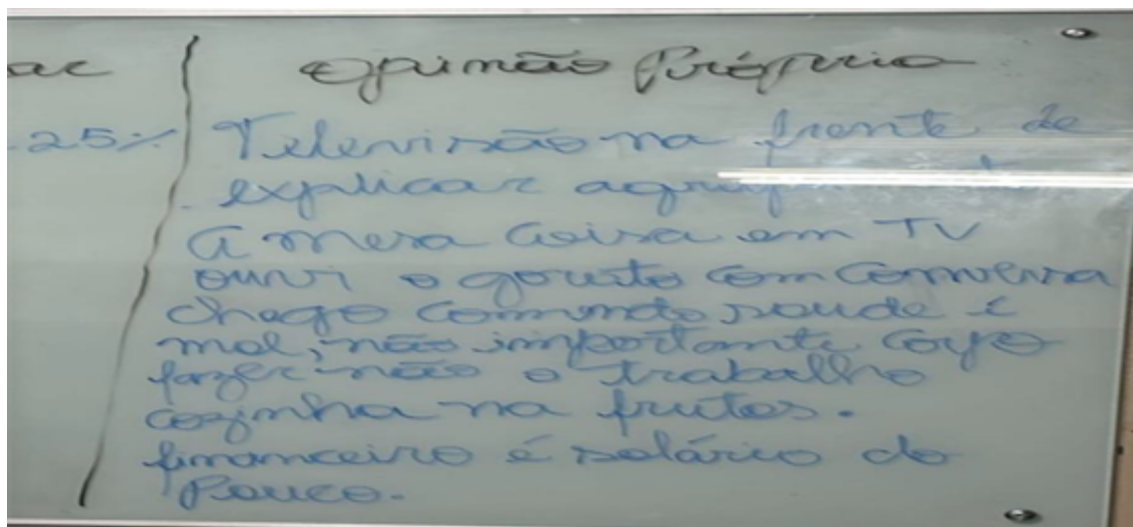 ac
opinião Próprio
25% Televisão na frente de
explicar
A mesa Coisa em TV
ouvi o gousto com conversa
chego comendo saude é
mal, não importante corpo
fazer não o trabalho
cozinha na frutas.
financeiro é salário do
Pouco.